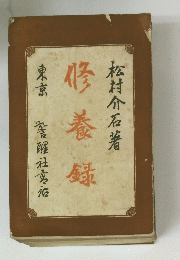 松村介石著
修養録
東京 警醒社書店